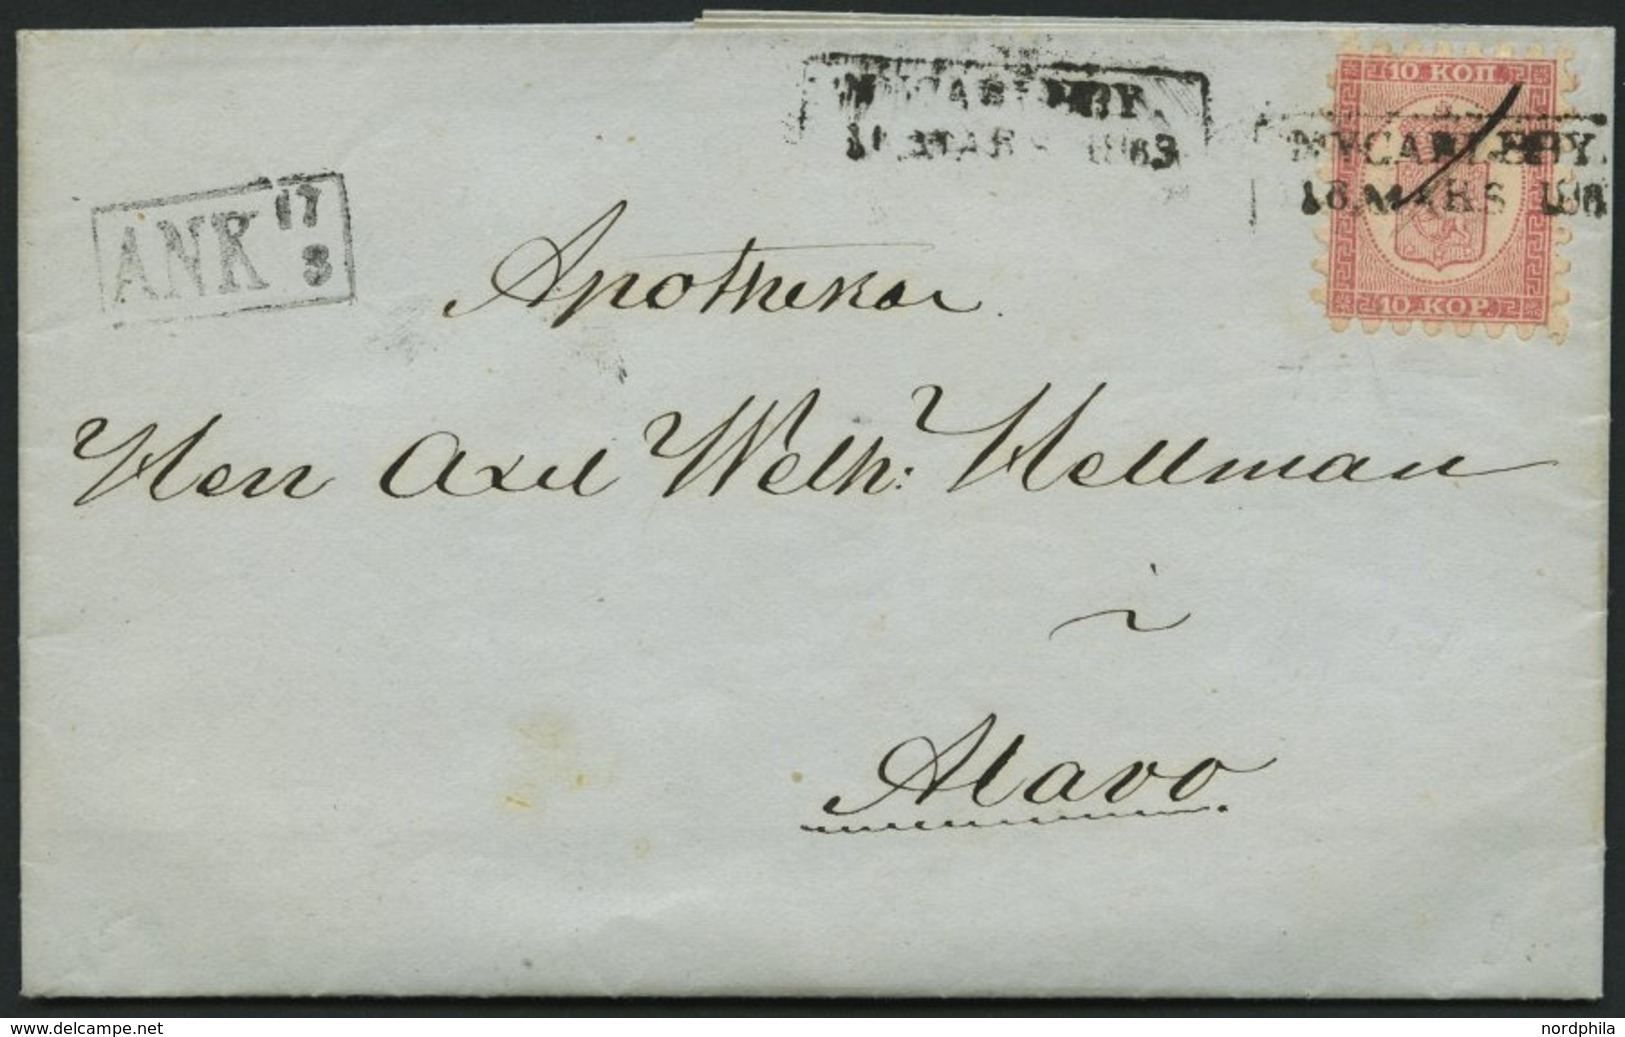 NYCARLEBY.
1863
10 КОП.
NYCARLEBY.
16 MARS 186
10 KOP.
ANK 17
3
Apothekar
Herr Axel Welh: Hellman
i
Alavo.
www.delcampe.net
nordphila